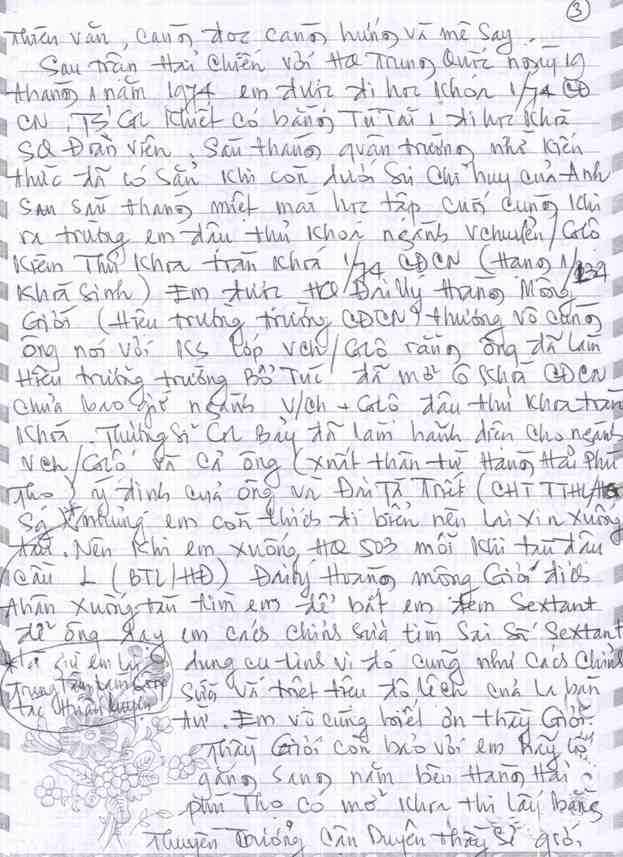 3
thiên văn, càng đọc càng hứng và mê say.
Sau trận Hải Chiến với HQ Trung Quốc ngày 19
tháng 1 năm 1974 em được đi học khóa 1/74 CĐ
CN, TS/GL Khiết có bằng Tú Tài 1 đi học Khóa
SQ Đoàn Viên. Sáu tháng quân trường nhờ kiến
thức đã có sẵn khi còn dưới sự chỉ huy của Anh
sau sáu tháng miệt mài học tập cuối cùng khi
ra trường em đậu thủ khoa ngành Vchuyển/Glô
kiêm Thủ Khoa toàn khóa 1/74 CĐCN (Hạng 1/134
Khóa Sinh) Em được HQ Đại Úy Hoàng Mộng
Giới (Hiệu trưởng trường CĐCN) thương vô cùng
ông nói với KS lớp Vch/Glô rằng ông đã làm
Hiệu trưởng trường Bổ Túc đã mở 6 khóa CĐCN
chưa bao giờ ngành V/ch + Glô đậu thủ khoa toàn
khóa. Thượng Sĩ GL Bảy đã làm hãnh diện cho ngành
Vch/Glô và cả ông (xuất thân từ Hàng Hải Phú
Thọ) ý định của ông và Đại Tá Triết (CHT TTHL/HQ
* nhưng em còn thích đi biển nên lại xin xuống
tàu. Nên khi em xuống HQ 503 mỗi khi tàu đậu
cầu L (BTL/HĐ) Đại úy Hoàng mộng Giới đích
thân xuống tàu tìm em để bắt em đem Sextant
để ông dạy em cách chỉnh sửa tìm Sai Số Sextant
dụng cụ tính vị đó cũng như cách chỉnh
* giữ em lại
Trung Tâm làm công
tác Huấn Luyện
sửa và triệt tiêu độ lệch của la bàn
từ. Em vô cùng biết ơn thầy Giới.
Thầy Giới còn bảo với em hãy cố
gắng sang năm bên Hàng Hải
phú Thọ có mở khóa thi lấy bằng
Thuyền Trưởng Cận Duyên thầy sẽ giới